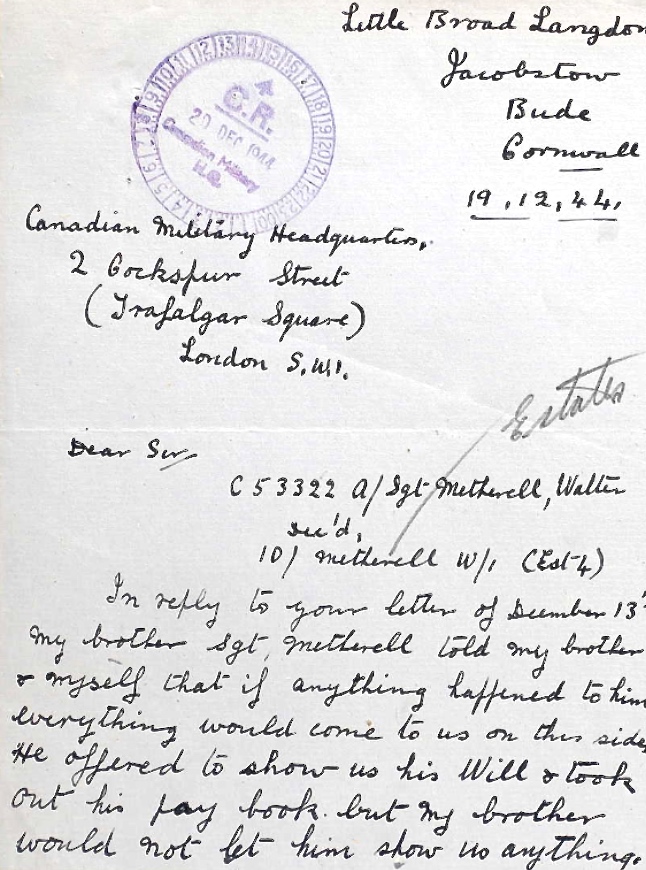 Little Broad Langdon
Jacobstow
Bude
Cornwall
19.12.44.
C.R.
20 DEC 1944
Canadian Military
H.Q.
Canadian Military Headquarters,
2 Cockspur Street
(Trafalgar Square)
London S.W.1.
Estates
Dear Sir
C53322 A/Sgt Metherell, Walter
Dec'd,
10/ Metherell W/1 (Est-4)
In reply to your letter of December 13
my brother Sgt. Metherell told my brother
& myself that if anything happened to him
everything would come to us on this side.
He offered to show us his Will & took
out his pay book. but my brother
would not let him show us anything.